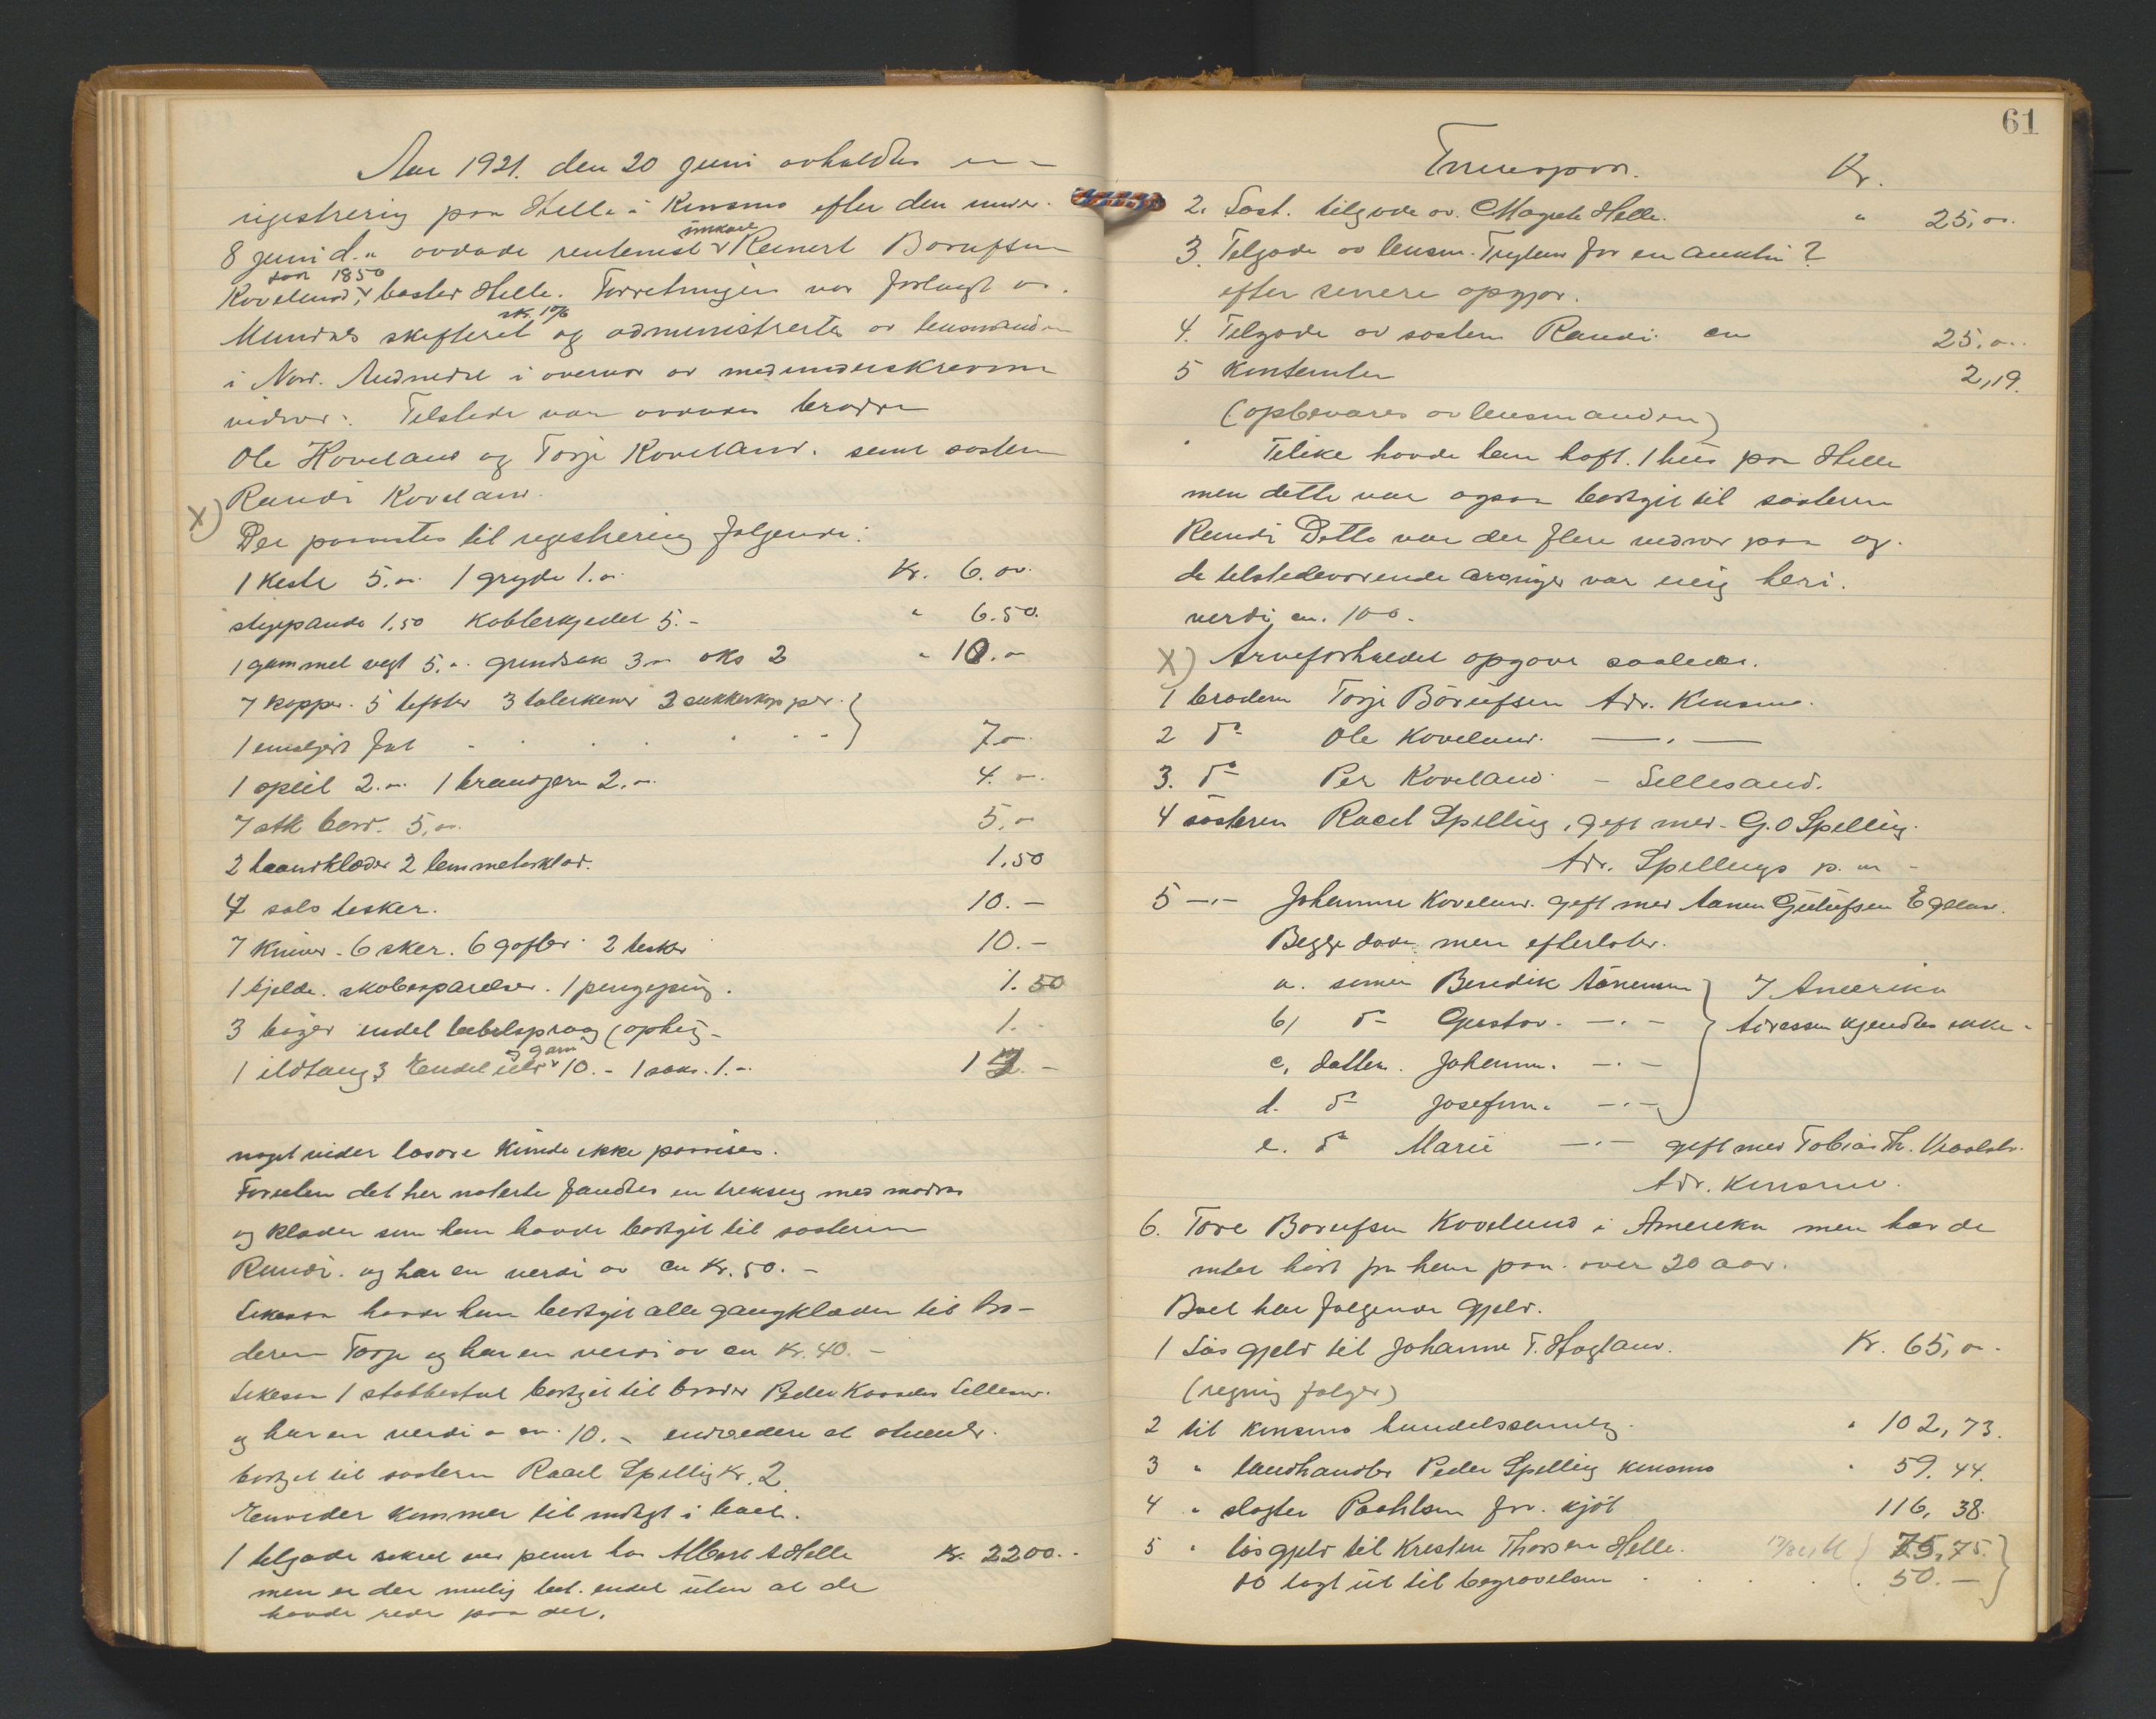 Aar 1921. den 20 juni avholdtes en
registrering paa Helle i Konsmo efter den under
8 juni d.a. avdøde rentenist Reinert Børufsen
unkarl
Koveland, bosted Helle. Forretningen var forlangt av
født 1850
Mandals skifteret og administrertes av lensmanden
i Nord. Audnedal i overvær av medunderskrevne
vidner. Tilstede var avdødes brødre
Ole Koveland og Torje Koveland. samt søsteren
Randi Koveland.
X)
Der paavistes til registrering følgende:
1 kiste 5.00 1 gryde 1.00 Kr. 6.00
stegepande 1.50 Kobberkjedel 5.- " 6.50.
1 gammel vegt 5.00 3.00 øks 2 " 10.00
7 kopper. 5 tefater 3 talerkener 2 sukkerkopper
1 emaljert fat 7.00
1 speil 2.00 1 brandjern 2.00 4.00
7 stk bord. 5.00 5.00
2 haandklæder 2 lommetørklær. 1.50
7 sølv tesker. 10.-
7 kniver. 6 skeer. 6 gafler 2 tesker 10.-
1 bjelde. skobesparelser. 1 pengepung. 1.50
3 bøger endel 1.
1 ildtang 3 endel uld 10.- 1 saks. 1.-
og garn
noget videre løsøre kunde ikke paavises.
Foruten det her noterte fandtes en trekseng med madras
og klæder som han havde bortgit til søsteren
Randi. og har en verdi av ca Kr. 50.-
Likesaa havde han bortgit alle gangklæder til bro-
deren Torje og har en verdi av ca Kr. 40.-
Likesaa 1 stabbestol bortgit til broder Peder Koveland Lillesand.
og har en verdi a ca. 10.- endvidere et
bortgit til søsteren Racel Spilling Kr. 2.
Endvider kommer til indtægt i boet.
1 tilgode sikret ved pant hos Albert A Helle Kr. 2200.-
men er der mulig bet. endel uten at de
havde rede paa det.
61
Transport. Kr.
2. Løst. tilgode av. Magrete Helle. " 25,00.
3. Tilgode av lensm. Tryland for en auktion ?
efter senere opgjør.
4. Tilgode av søsteren Randi ca 25.00.
5 Kontanter 2,19.
(opbevares av lensmanden)
Tilike havde han haft. 1 hus paa Helle
men dette var ogsaa bortgit til søsteren
Randi Dette var der flere vidner paa og
de tilstedeværende arvinger var enig heri.
verdi ca. 100.
X) Arveforholdet opgaves saaledes.
1 broderen Torje Börufsen Adr. Konsmo.
2 do Ole Koveland. —"—
3. do Per Koveland - Lillesand.
4 søsteren Racel Spilling, gift med G.O Spilling.
Adr. Spillings p.a
5 —"— Johanne Koveland. gift med Aanen Gutufsen Egeland.
Begge døde men efterlater.
a. sønnen Bendik Aanensen } I Amerika
b) do Gustav. —"— } Adressen kjendtes ikke
c, datter. Johanne. —"—
d. do Josefine. —"—
e. do Marie —"— gift med Tobias Th.
Adr. Konsmo.
6. Tore Børufsen Koveland i Amerika men har de
intet hört fra ham paa over 20 aar.
Boet har følgende gjeld.
1 Løs gjeld til Johanne T. Hogland. Kr. 65,00.
(regning følger)
2 til Konsmo handelssamlag. " 102,73.
3 " landhandler Peder Spilling Konsmo " 59.44.
4 " slagter Paahlsen for. kjöt 116,38.
5 " løsgjeld til Kristen Thorsen Helle. 75,75.
Do lagt ut til begravelsen 50.—